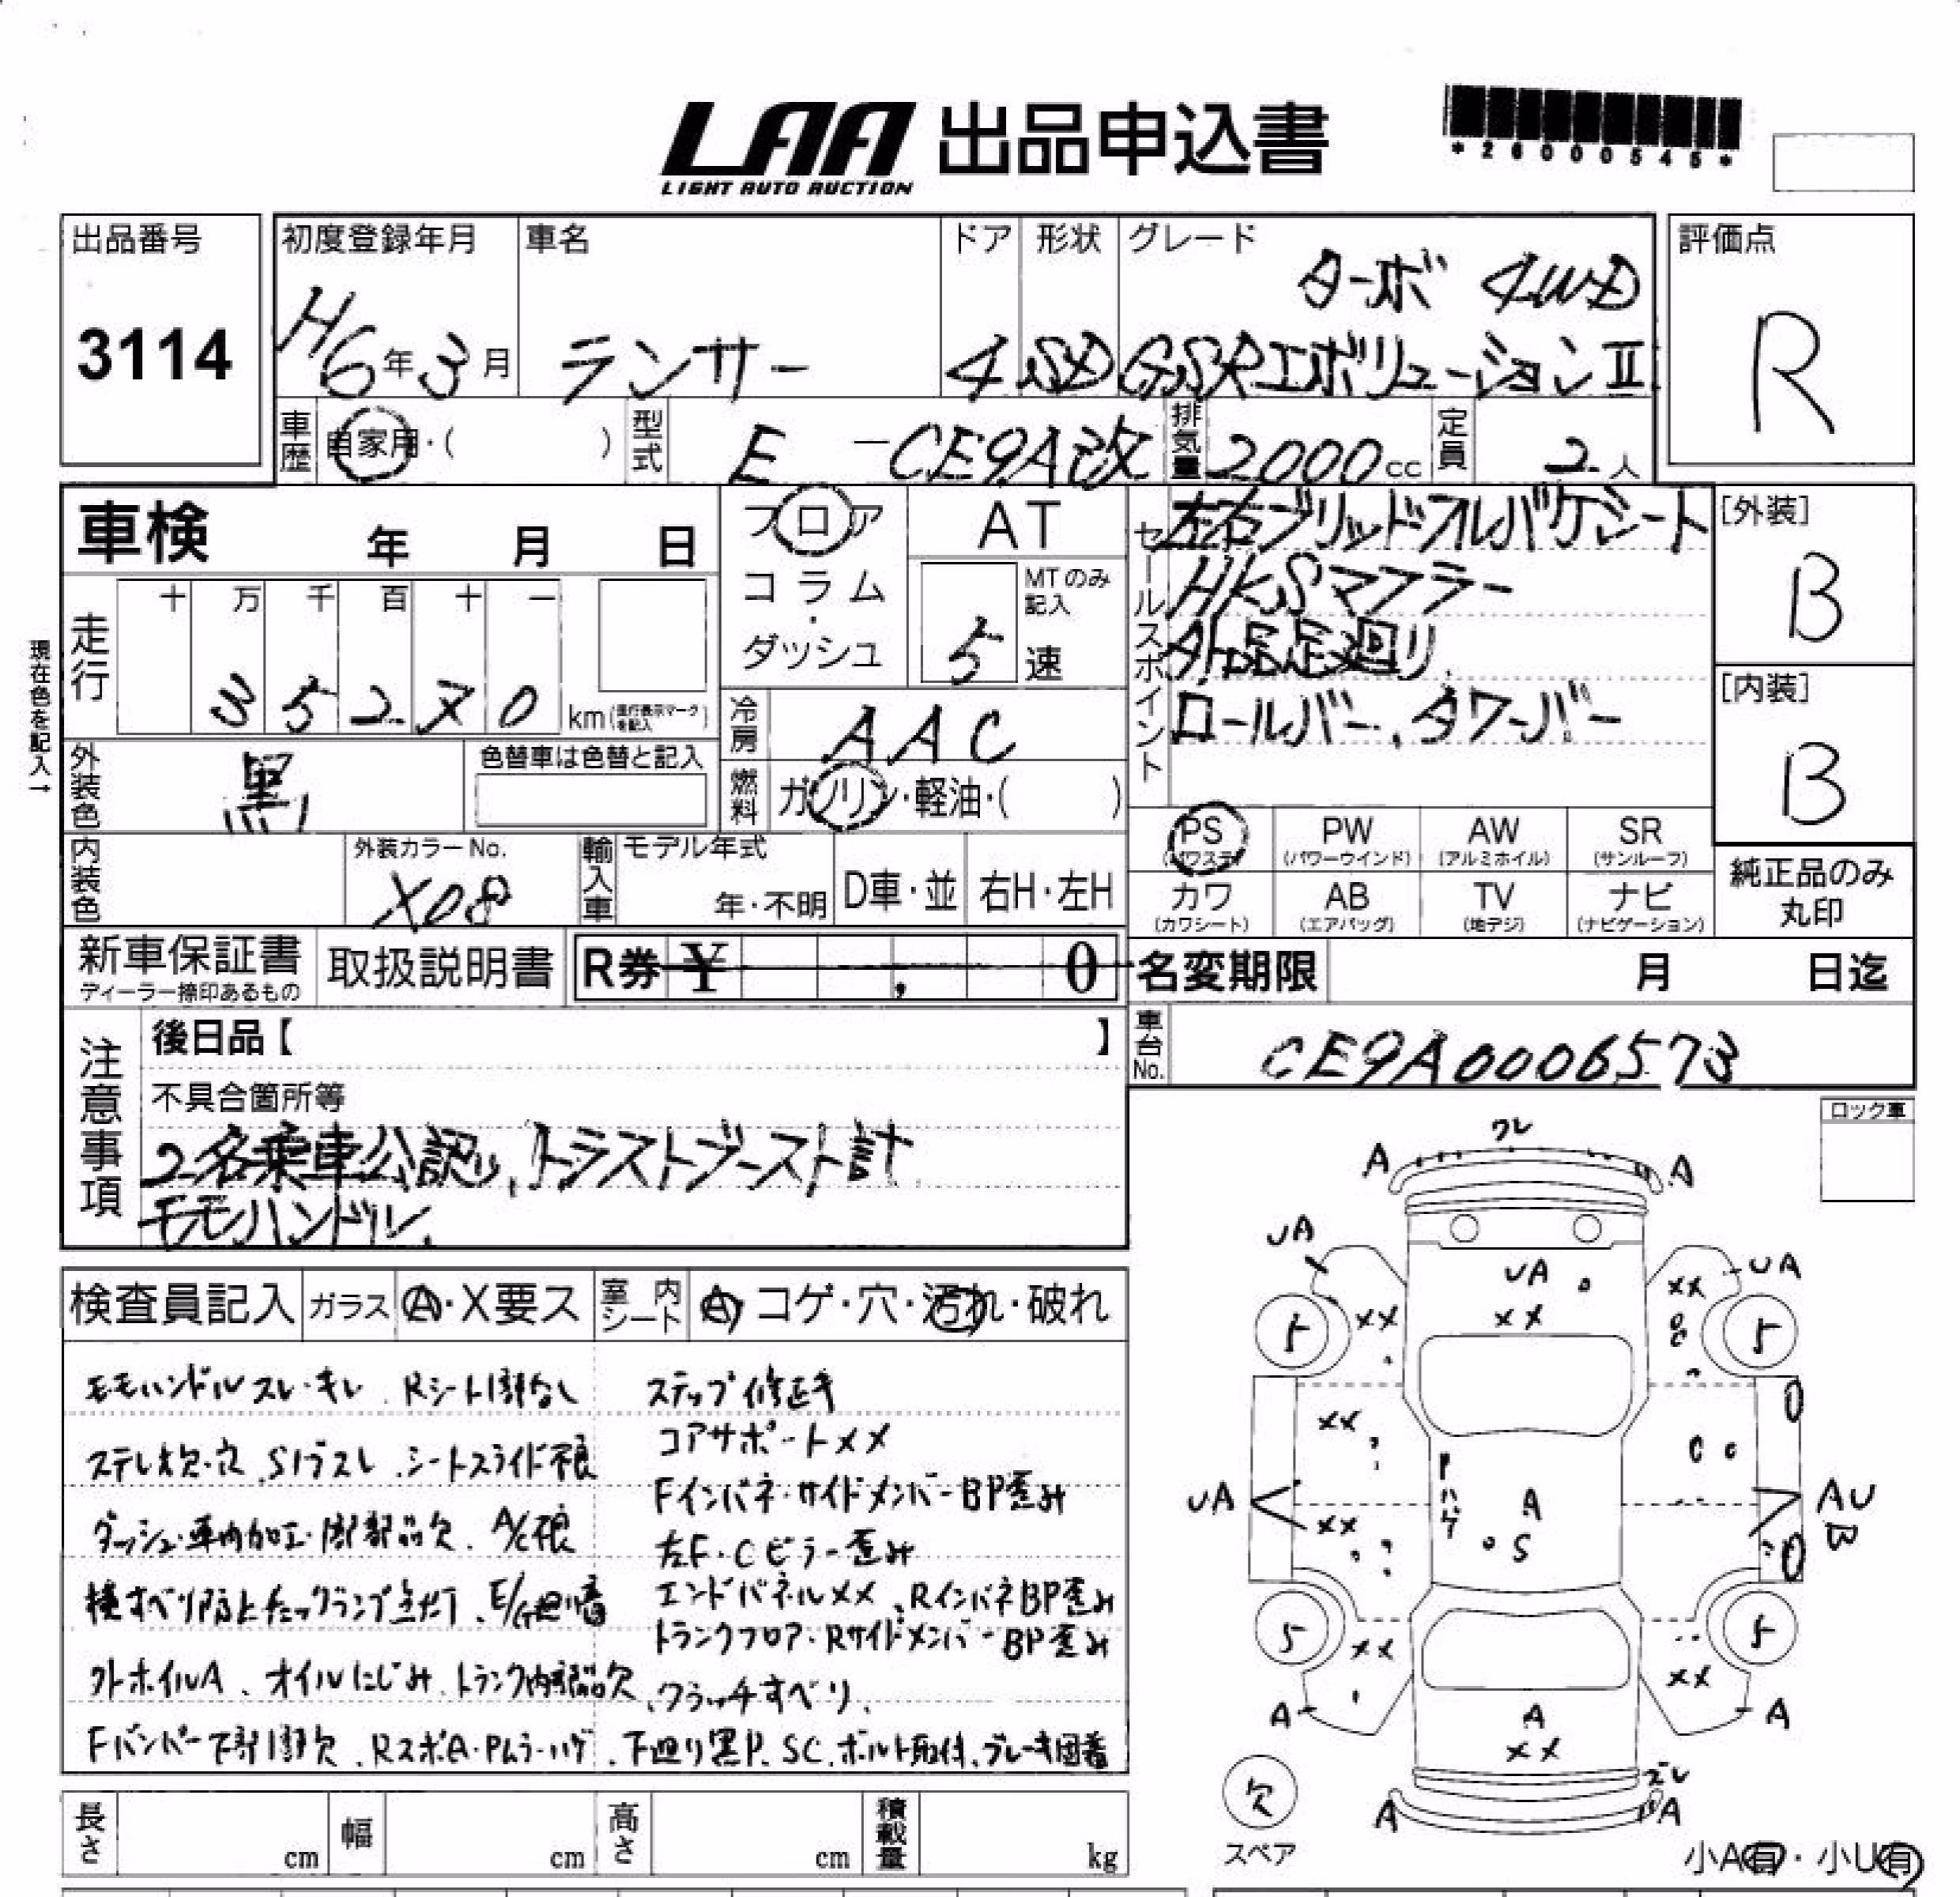 LAA 出品申込書
LIGHT AUTO AUCTION
*26000545*
出品番号
3114
初度登録年月
H6年3月
車名
ランサー
ドア
4
形状
SD
グレード
ターボ 4WD
GSRエボリューションⅡ
評価点
R
車歴
自家用・( )
型式
E-CE9A改
排気量
2000cc
定員
2人
車検 年 月 日
現在色を記入→
走行
十 万 千 百 十 一
35270 km(走行表示マークを記入)
外装色
黒
色替車は色替と記入
内装色
外装カラーNo.
X08
輸入車
モデル年式
年・不明
D車・並
右H・左H
フロア
コラム
・
ダッシュ
AT
MTのみ記入
5速
冷房
AAC
燃料
ガソリン・軽油・( )
セールスポイント
左右ブリッドフルバケシート
HKSマフラー
外品足廻り
ロールバー、タワーバー
[外装]
B
[内装]
B
PS (パワステ)
PW (パワーウインド)
AW (アルミホイル)
SR (サンルーフ)
カワ (カワシート)
AB (エアバッグ)
TV (地デジ)
ナビ (ナビゲーション)
純正品のみ
丸印
新車保証書
ディーラー捺印あるもの
取扱説明書
R券 ¥ , 0
名変期限 月 日迄
車台No.
CE9A0006573
注意事項
後日品【 】
不具合箇所等
2名乗車公認、トラストブースト計
モモハンドル.
検査員記入
ガラス
A・X要ス
室内シート
A・コゲ・穴・汚れ・破れ
モモハンドルスレ・キレ Rシート1部なし
ステレオ欠・穴、S/ブスレ、シートスライド不良
ダッシュ・車内加工・1部部品欠、A/C不良
横すべり防止チェックランプ点灯、
外ホイルA、オイルにじみ、トランク内部品欠
Fバンパー下部1部欠、RスポA・Pムラ・ハゲ、下廻り黒P、SC、ボルト取付、ブレーキ固着
ステップ修正キ
コアサポートメメ
Fインパネ・サイドメンバーBP歪み
左F・Cピラー歪み
エンドパネルメメ、RインパネBP歪み
トランクフロア・RサイドメンバーBP歪み
クラッチすべり、
ロック車
ワレ
A A
UA UA
UA
XX XX XX
5 5
XX
UA A AU
B
P
ハゲ
S
XX
5 5
XX XX
A A A
XX
ズレ
A A
欠
スペア
小A有・小U有
長さ cm
幅 cm
高さ cm
積載量 kg